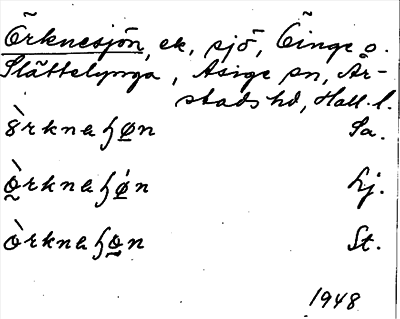 Örknesjön, ek, sjö, Öinge o.
Slättelynga, Asige sn, År-
stads hd, Hall. l.
ò̈rknaɧøn Sa.
ò̰rknaɧǿn Lj.
òrknaɧo̰n St.
1948